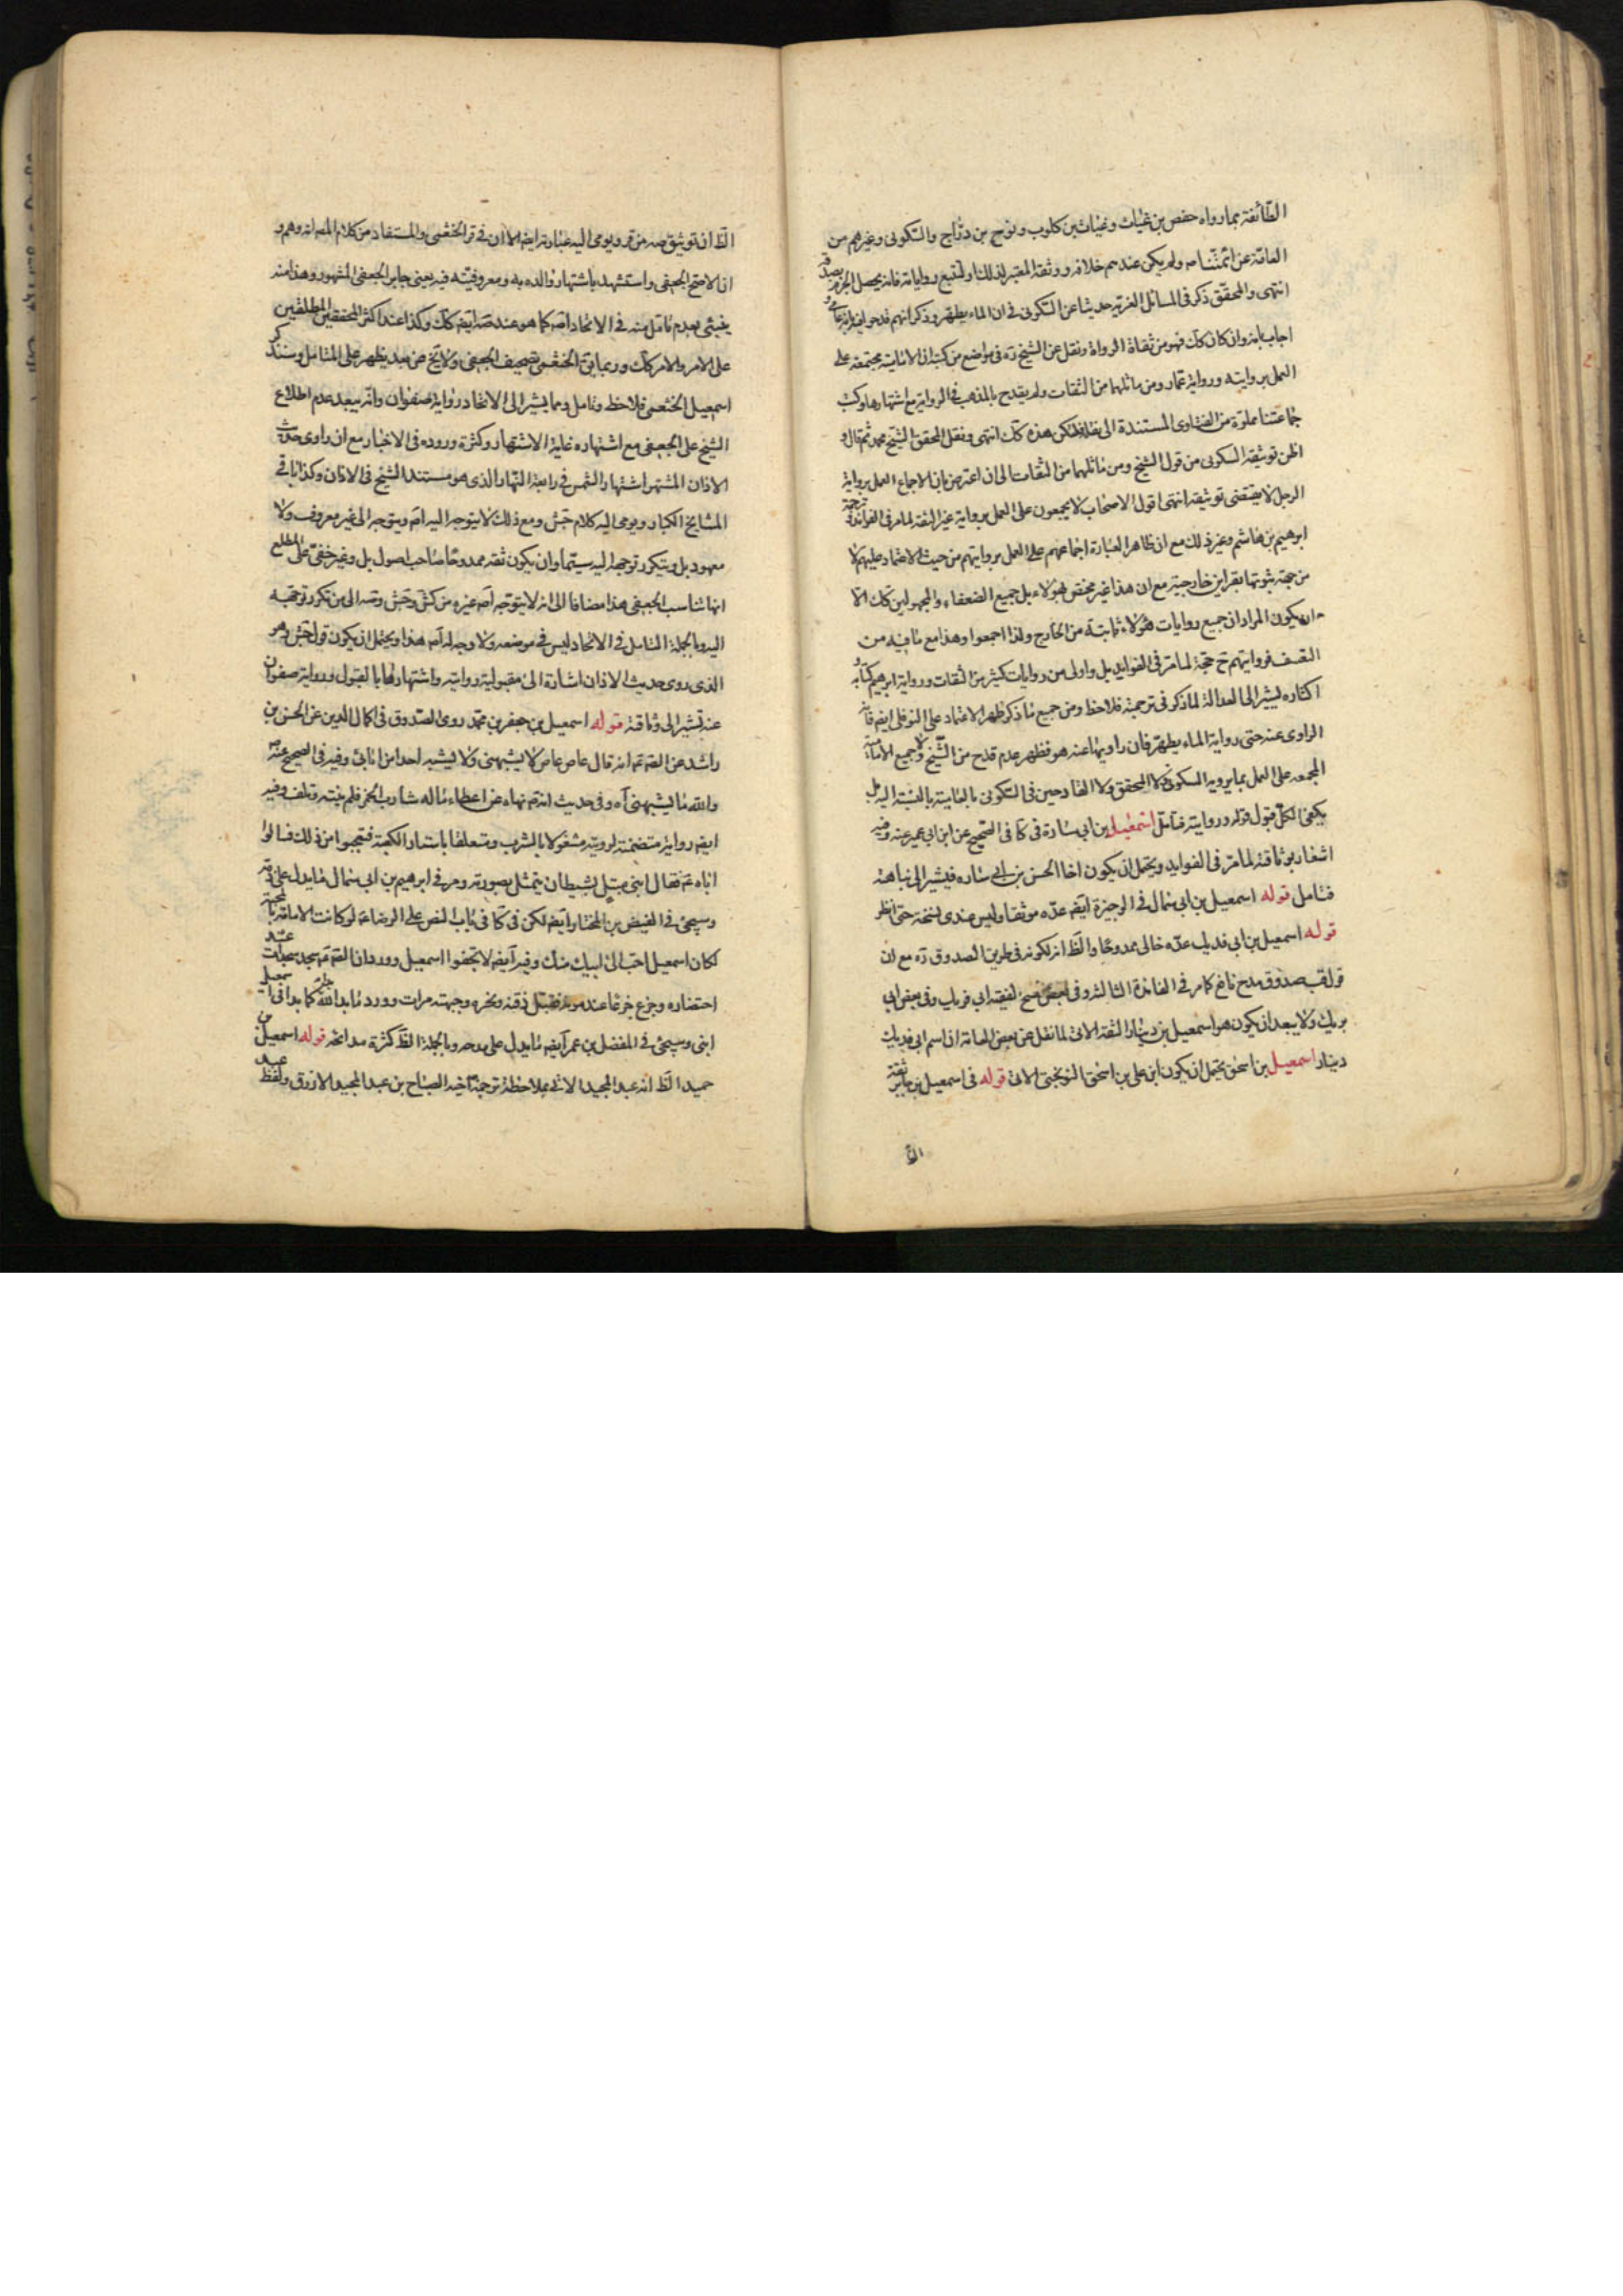 الطائفة بما رواه حفص بن غياث وغياث بن كلوب ونوح بن دراج والسكونى وغيرهم من
العامة عن ائمتنا ولم يكن عندهم خلافه ووثقه المعتبر لذلك ولتتبع رواياته فانه يحصل الجزم بصدقه
انتهى والمحقق ذكر فى المسائل الغرية حديثا عن السكونى فى ان الماء يطهر وذكر انهم قدحوا فيه بانه عامى و
اجاب بانه وان كان كك فهو من ثقاة الرواة ونقل عن الشيخ ره فى مواضع من كتبه ان الامامية مجتمعة على
العمل بروايته ورواية عمار ومن ماثلهما من الثقات ولم يقدح بالمذهب فى الرواية مع اشتهارها وكتب
جماعتنا مملوة من الفتاوى المستندة الى نقله فلتكن هذه كك انتهى ونقل المحقق الشيخ محمد ثم قال و
اظن توثيقه السكونى من قول الشيخ ومن ماثلهما من الثقات الى ان اعترض بان الاجماع العمل برواية
الرجل لا يقتضى توثيقه انتهى اقول الاصحاب لا يجمعون على العمل برواية غير الثقة لما مر فى الفوائد وترجمة
ابرهيم بن هاشم وغير ذلك مع ان ظاهر العبارة اجماعهم على العمل بروايتهم من حيث الاعتماد عليهم لا
من جهة ثبوتها بقراين خارجية مع ان هذا غير مختص بهؤلاء بل جميع الضعفاء والمجهولين كك الا
ان يكون المراد ان جميع روايات هؤلاء ثابتة من الخارج ولذا اجمعوا وهذا مع ما فيه من
التعسف فروايتهم ح حجة لما مر فى الفوايد بل واولى من روايات كثير من الثقات ورواية ابرهيم كتابه و
اكثاره يشير الى العدالة لما ذكر فى ترجمته فلاحظ ومن جميع ما ذكر ظهر الاعتماد على النوفلى ايضا فانه
الراوى عنه حتى رواية الماء يطهر فان راويها عنه هو فظهر عدم قدح من الشيخ ولا جميع الامامية
المجمعة على العمل بما يرويه السكونى ولا المحقق ولا القادحين فى السكونى بالعامية بالنسبة اليه بل
يكفى الكل قبول قوله وروايته فتامل اسمعيل بن ابى سارة فى كا فى الصحيح عن ابن ابى عمير عنه وفيه
اشعار بوثاقته لما مر فى الفوايد ويحتمل ان يكون اخا الحسن بن ابى ساره فيشير الى نباهته
فتامل قوله اسمعيل بن ابى سمال فى الوجيزة ايضا عده موثقا وليس عندى نسخته حتى انظر
قوله اسمعيل بن ابى فديك عده خالى ممدوحا والظ انه لكونه فى طريق الصدوق ره مع ان
قول قب صدوق مدح نافع كما مر فى الفائدة الثالثة وفى بعض نسخ الفقيه ابى فريك وفى بعض ابى
بريك ولا يبعد ان يكون هو اسمعيل بن دينار الثقة الاتى لما نقل عن بعض العامة ان اسم ابى فديك
دينار اسمعيل بن اسحق يحتمل ان يكون ابن على بن اسحق النوبختى الاتى قوله فى اسمعيل بن جابر ثقة
الظ
الظ ان توثيق صه من قر ويومى اليه عبارته ايضا الا ان فى قر الخثعمى والمستفاد من كلام المص انه وهم و
ان الاصح الجعفى واستشهد باشتهار والده به ومعروفيته فيه يعنى جابر الجعفى المشهور وهذا منه
ينبئ بعدم تامل منه فى الاتحاد اصلا كما هو عند صه ايضا كك وكذا عند اكثر المحققين المطلعين
على الامر والامر كك وربما بقى الخثعمى تصحيف الجعفى ولا يخ عن بعد يظهر على المتامل وسنذكر
اسمعيل الخثعمى فلاحظ وتامل ومما يشير الى الاتحاد رواية صفوان وانه يبعد عدم اطلاع
الشيخ على الجعفى مع اشتهاره غاية الاشتهار وكثرة وروده فى الاخبار مع ان راوى حديث
الاذان المشتهر اشتهار الشمس فى رابعة النهار الذى هو مستند الشيخ فى الاذان وكذا باقى
المشايخ الكبار ويومى اليه كلام جش ومع ذلك لا يتوجه اليه اصلا ويتوجه الى غير معروف ولا
معهود بل ويتكرر توجه اليه سيما وان يكون ثقه ممدوحا صاحب اصول بل وغير خفى على المطلع
انها تناسب الجعفى هذا مضافا الى انه لا يتوجه اصلا غيره من كش وجش وصه الى من تكرر توجهه
اليه وبالجملة التامل فى الاتحاد ليس فى موضعه ولا وجه له اصلا هذا ويحتمل ان يكون قول جش وهو
الذى روى حديث الاذان اشارة الى مقبولية روايته واشتهارها بالقبول ورواية صفوان
عنه تشير الى وثاقته قوله اسمعيل بن جعفر بن محمد روى الصدوق فى اكمال الدين عن الحسن بن
راشد عن الصم انه قال عاص عاص لا يشبهنى ولا يشبه احدا من ابائى وفيه فى الصحيح عنه
والله ما يشبهنى اه وفى حديث انه نهاه عن اعطاء ماله شارب الخمر فلم ينته وتلف وفيه
ايضا رواية متضمنة لرويته مشغولا بالشرب ومتعلقا باستار الكعبة فتعجبوا من ذلك فسالوا
اباه فقال ابنى مبتلى بشيطان يتمثل بصورته ومر فى ابرهيم بن ابى سمال ما يدل على ذمه
وسيجئ فى الفيض بن المختار ايضا لكن فى كا فى باب النص على الرضا لو كانت الامامة بالمحبة
لكان اسمعيل احب الى ابيك منك وفيه ايضا لا تجفوا اسمعيل وورد ان الصم سجد سجدات عند
احتضاره وجزع جزعا عند موته فقبل ذقنه ونحره وجبهته مرات وورد ما بدا لله كما بدا فى اسمعيل
ابنى وسيجئ فى المفضل بن عمر ايضا ما يدل على مدحه وبالجملة الظ كثرة مدائحه قوله اسمعيل بن
حميد الظ انه عبد الحميد الاتى بملاحظة ترجمة اخيه الصباح بن عبد الحميد الازرق ولفظ عبد